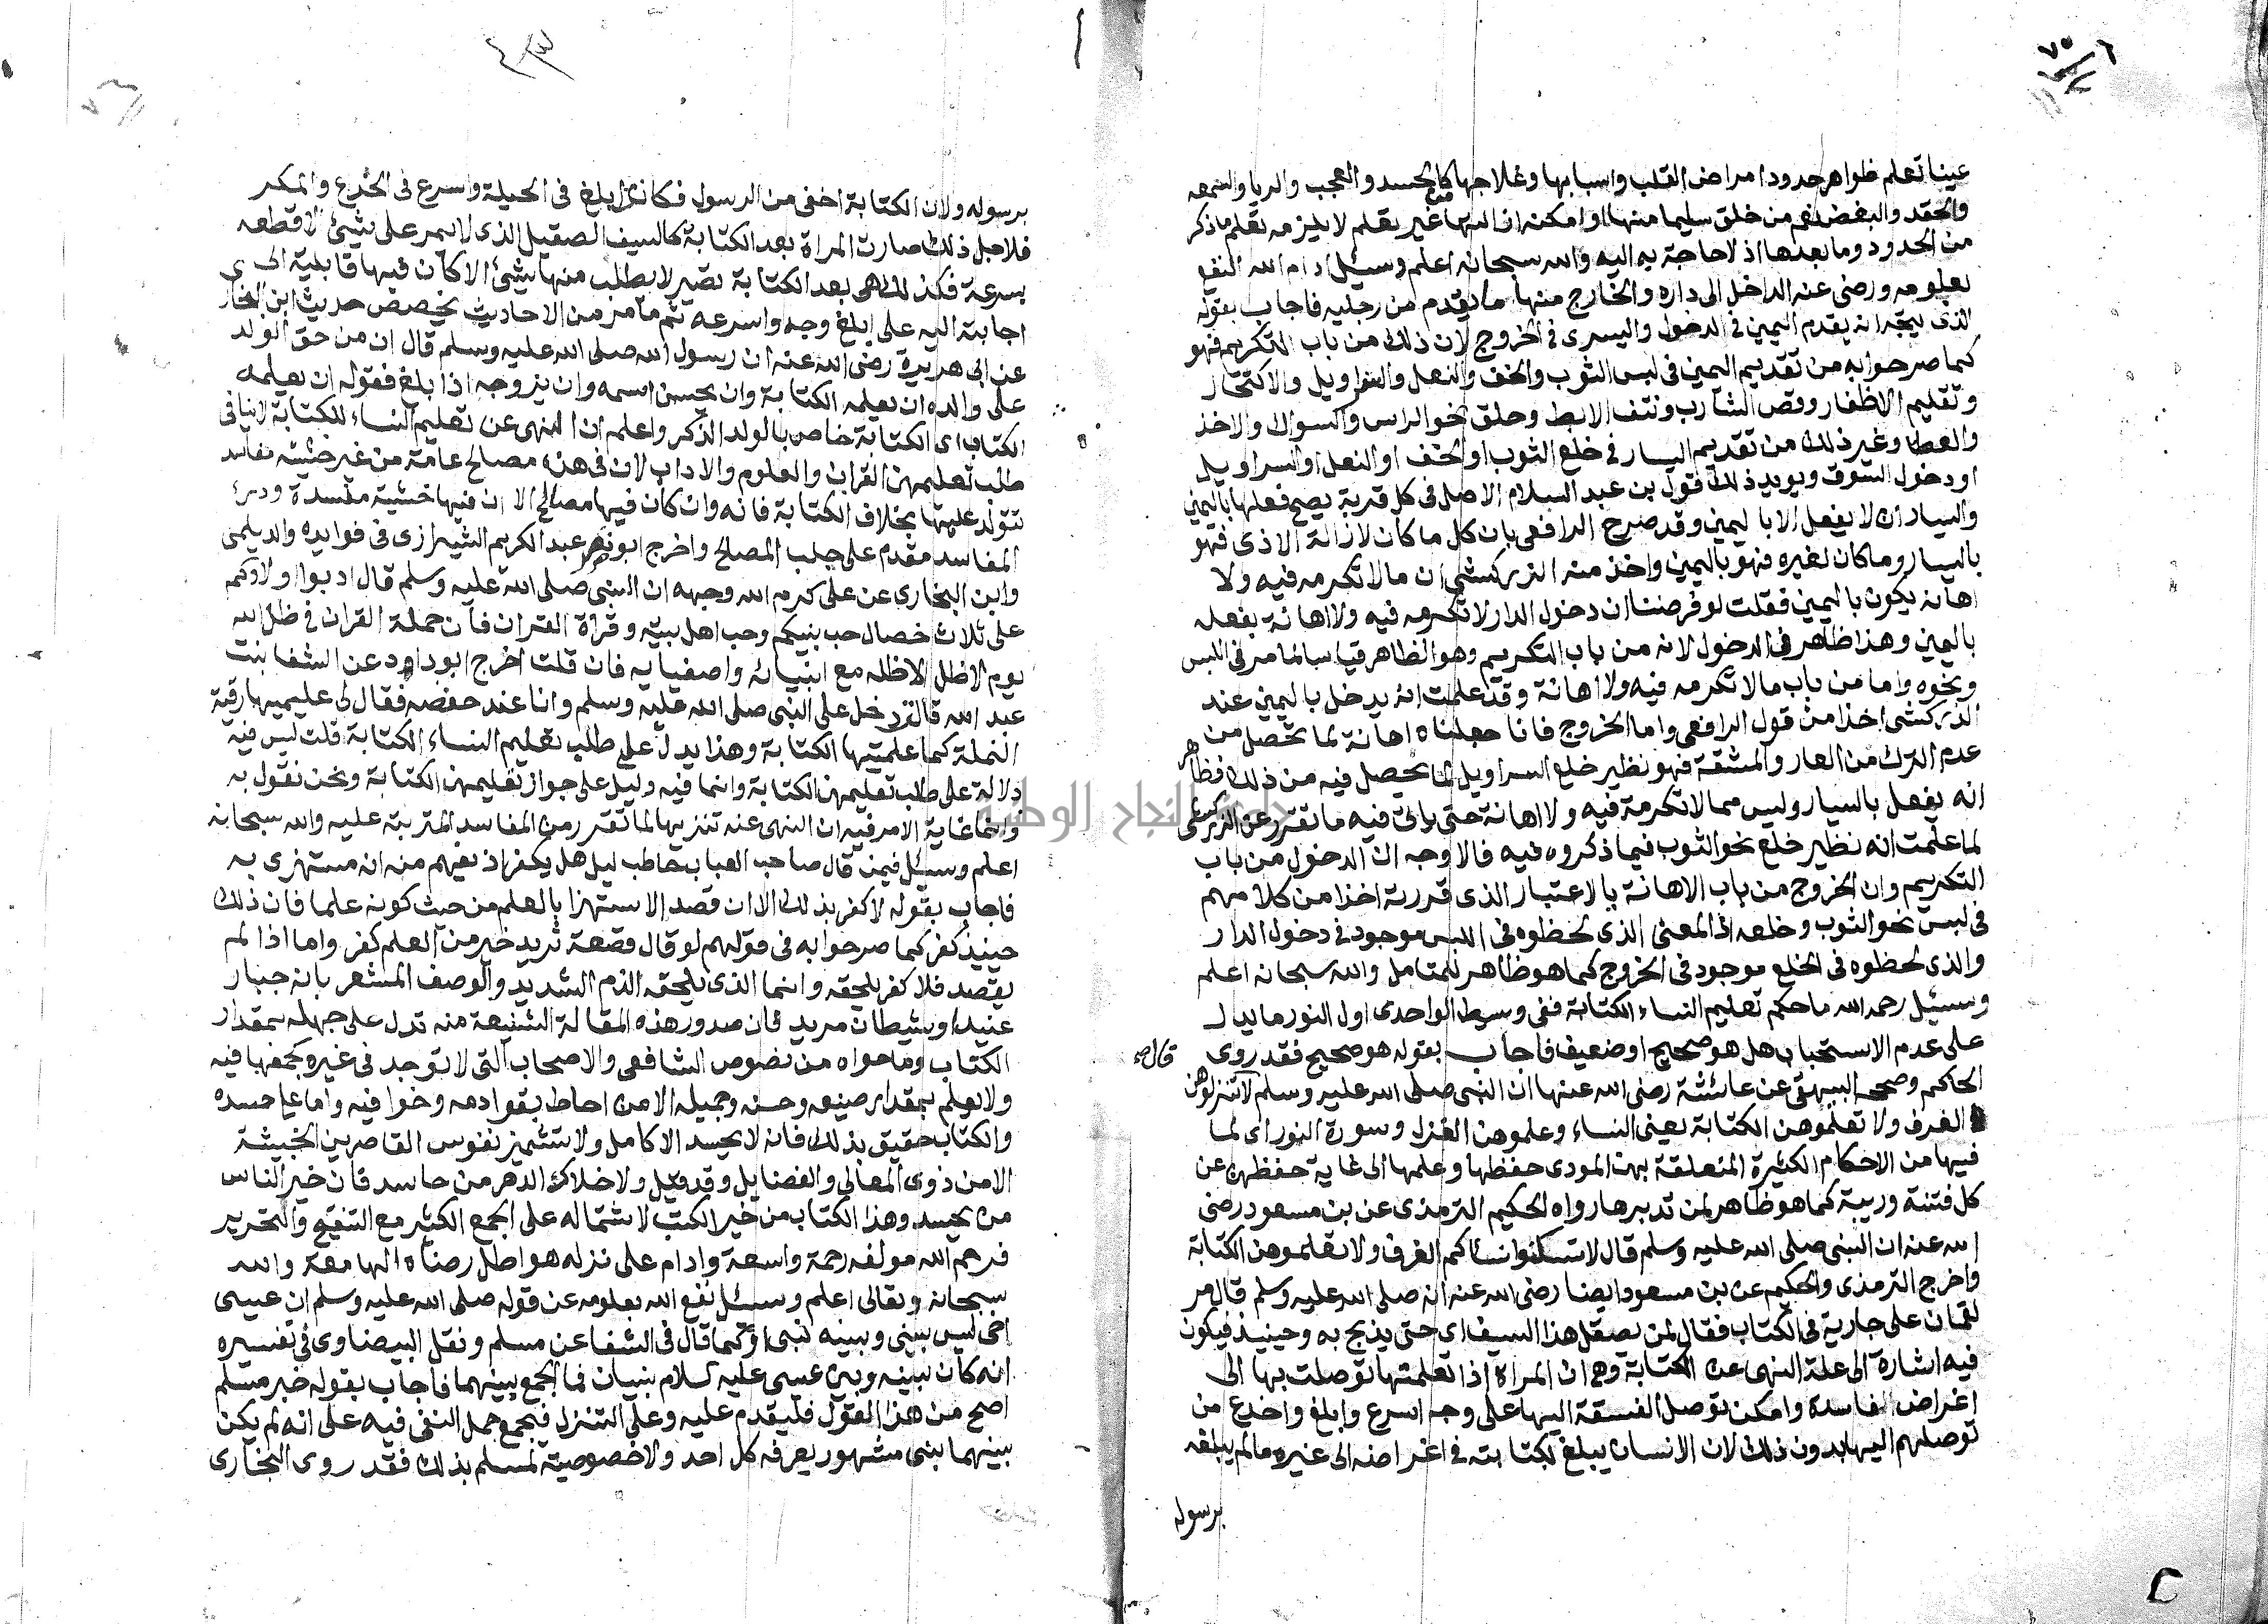 عينا تعلم ظواهر حدود امراض القلب واسبابها وعلاجها كالحسد والعجب والريا والسمعه
والحقد والبغض نعم من خلق سليما منها او امكنه ازالتها من غير تعلم لا يلزمه تعلم ما ذكر
من الحدود وما بعدها اذ لا حاجة به اليه والله سبحانه اعلم وسئل ادام الله النفع
بعلومه ورضى عنه الداخل الى داره والخارج منها ما يقدم من رجليه فاجاب بقوله
الذى يتجه انه يقدم اليمين في الدخول واليسرى في الخروج لان ذلك من باب التكريم فهو
كما صرحوا به من تقديم اليمين في لبس الثوب والخف والنعل والسراويل والاكتحال
وتقليم الاظفار وقص الشارب ونتف الابط وحلق نحو الراس والسواك والاخذ
والعطا وغير ذلك من تقديم اليسار في خلع الثوب او الخف او النعل او السراويل
او دخول السوق ويويد ذلك قول بن عبد السلام الاصل في كل قربة يصح فعلها باليمين
واليسار ان لا يفعل الا باليمين وقد صرح الرافعى بان كل ما كان لازالة الاذى فهو
باليسار وما كان لغيره فهو باليمين واخذ منه الزركشى ان ما لا تكرمه فيه ولا
اهانه يكون باليمين فقلت لو فرضنا ان دخول الدار لا تكرمه فيه ولا اهانة بفعله
باليمين وهذا ظاهر في الدخول لانه من باب التكريم وهو الظاهر قياسا لما مر في اللبس
ونحوه واما من باب ما لا تكرمه فيه ولا اهانة وقد علمت انه يدخل باليمين عند
الزركشى اخذا من قول الرافعى واما الخروج فانا جعلناه اهانة لما تحصل من
عدم الترك من العار والمشقة فهو نظير خلع السراويل لما يحصل فيه من ذلك فظاهر
انه يفعل باليسار وليس مما لا تكرمة فيه ولا اهانة حتى ياتى فيه ما تقرر عن الزركشى
لما علمت انه نظير خلع نحو الثوب فيما ذكروه فيه فالاوجه ان الدخول من باب
التكريم وان الخروج من باب الاهانة بالاعتبار الذى قررته اخذا من كلامهم
في لبس نحو الثوب وخلعه اذ المعنى الذى لحظوه في اللبس موجود في دخول الدار
والذى لحظوه في الخلع موجود في الخروج كما هو ظاهر للمتامل والله سبحانه اعلم
وسئيل رحمه الله ما حكم تعليم النساء الكتابة ففى وسيط الواحدى اول النور ما يدل
على عدم الاستحباب هل هو صحيح او ضعيف فاجاب بقوله هو صحيح فقد روى
قال صه
الحاكم وصححه البيهقى عن عائشة رضى الله عنها ان النبى صلى الله عليه وسلم لا تنزلوهن
الغرف ولا تعلموهن الكتابة يعنى النساء وعلموهن الغزل وسورة النور اى لما
فيها من الاحكام الكثيرة المتعلقة بهن المودى حفظها وعلمها الى غاية حفظهن عن
كل فتنة وريبة كما هو ظاهر لمن تدبرها رواه الحكيم الترمذى عن بن مسعود رضى
الله عنه ان النبى صلى الله عليه وسلم قال لا تسكنوا نساكم الغرف ولا تعلموهن الكتابة
واخرج الترمذى والحكيم عن بن مسعود ايضا رضى الله عنه انه صلى الله عليه وسلم قال مر
لقمان على جارية في الكتاب فقال لمن يصقل هذا السيف اى حتى يذبح به وحينيذ فيكون
فيه اشارة الى علة النهى عن الكتابة وهى ان المراة اذا تعلمتها توصلت بها الى
اغراض الفاسدة وامكن توصل الفسقة اليها على وجه اسرع وابلغ واخدع من
توصلهم اليها بدون ذلك لان الانسان يبلغ بكتابته في اغراضه الى غيره ما لم يبلغه
برسوله
برسوله ولان الكتابة اخفى من الرسول فكانت ابلغ في الحيلة واسرع في الخدع والمكر
فلاجل ذلك صارت المراة بعد الكتابة كالسيف الصقيل الذى لا يمر على شئ الا قطعه
بسرعة فكذلك هى بعد الكتابة تصير لا يطلب منها شئ الا كان فيها قابلية الى
اجابته اليه على ابلغ وجه واسرعه ثم ما مر من الاحاديث يخصص حديث ابن النجار
عن ابى هريرة رضى الله عنه ان رسول الله صلى الله عليه وسلم قال ان من حق الولد
على والده ان يعلمه الكتابة وان يحسن اسمه وان يزوجه اذا بلغ فقوله ان يعلمه
الكتاب اى الكتابة خاص بالولد الذكر واعلم ان النهى عن تعليم النساء للكتابة لا ينافى
طلب تعليمهن القران والعلوم والاداب لان في هذه مصالح عامة من غير خشية مفاسد
تتولد عليها بخلاف الكتابة فانه وان كان فيها مصالح الا ان فيها خشية مفسدة ودرئ
المفاسد مقدم على جلب المصالح واخرج ابو نصر عبد الكريم الشيرازى في فوايده والديلمى
وابن البخارى عن على كرم الله وجهه ان النبى صلى الله عليه وسلم قال ادبوا اولادكم
على ثلاث خصال حب نبيكم وحب اهل بيته وقراة القران فان حملة القران في ظل الله
يوم لا ظل الا ظله مع انبيائه واصفيايه فان قلت اخرج ابو داود عن الشفا بنت
عبد الله قالت دخل على النبى صلى الله عليه وسلم وانا عند حفصه فقال لى علميها رقية
النملة كما علمتيها الكتابة وهذا يدل على طلب تعليم النساء الكتابة قلت ليس فيه
دلالة على طلب تعليمهن الكتابة وانما فيه دليل على جواز تعليمهن الكتابة ونحن نقول به
وانما غاية الامر فيه ان النهى عنه تنزيها لما تقرر من المفاسد المترتبة عليه والله سبحانه
اعلم وسئيل فيمن قال صاحب العباب حاطب ليل هل يكفر اذ يفهم منه انه مستهزى به
فاجاب بقوله لا كفر بذلك الا ان قصد الاستهزا بالعلم من حيث كونه علما فان ذلك
حينيذ كفر كما صرحوا به في قولهم لو قال قصعة ثريد خير من العلم كفر واما اذا لم
يقصد فلا كفر يلحقه وانما الذى يلحقه الذم الشديد والوصف المشعر بانه جبار
عنيد او شيطان مريد فان صدور هذه المقالة الشنيعة منه تدل على جهله بمقدار
الكتاب وما حواه من نصوص الشافعى والاصحاب التى لا توجد في غيره كجمعها فيه
ولا يعلم بمقدار صنيعه وحسنه وجميله الا من احاط بقوادمه وخوافيه واما على حسده
والكتاب حقيق بذلك فانه لا يحسد الا كامل ولا تشمئز نفوس القاصرين الخبيثة
الا من ذوى المعالى والفضايل وقد قيل ولا خلاك الدهر من حاسد فان خير الناس
من يحسد وهذا الكتاب من خير الكتب لاشتماله على الجمع الكثير مع التنقيح والتحرير
فرحم الله مولفه رحمة واسعة وادام على نزله هواطل رضاه الهامعة والله
سبحانه وتعالى اعلم وسئيل نفع الله بعلومه عن قوله صلى الله عليه وسلم ان عيسى
اخى ليس بينى وبينه نبى او كما قال في الشفا عن مسلم ونقل البيضاوى في تفسيره
انه كان بينه وبين عيسى عليه السلام نبيان فما الجمع بينهما فاجاب بقوله خبر مسلم
اصح من هذا القول فليقدم عليه وعلى التنزل فيجمع بحمل النفى فيه على انه لم يكن
بينهما بنى مشهور يعرفه كل احد ولا خصوصية لمسلم بذلك فقد روى البخارى
جامعة النجاح الوطنية